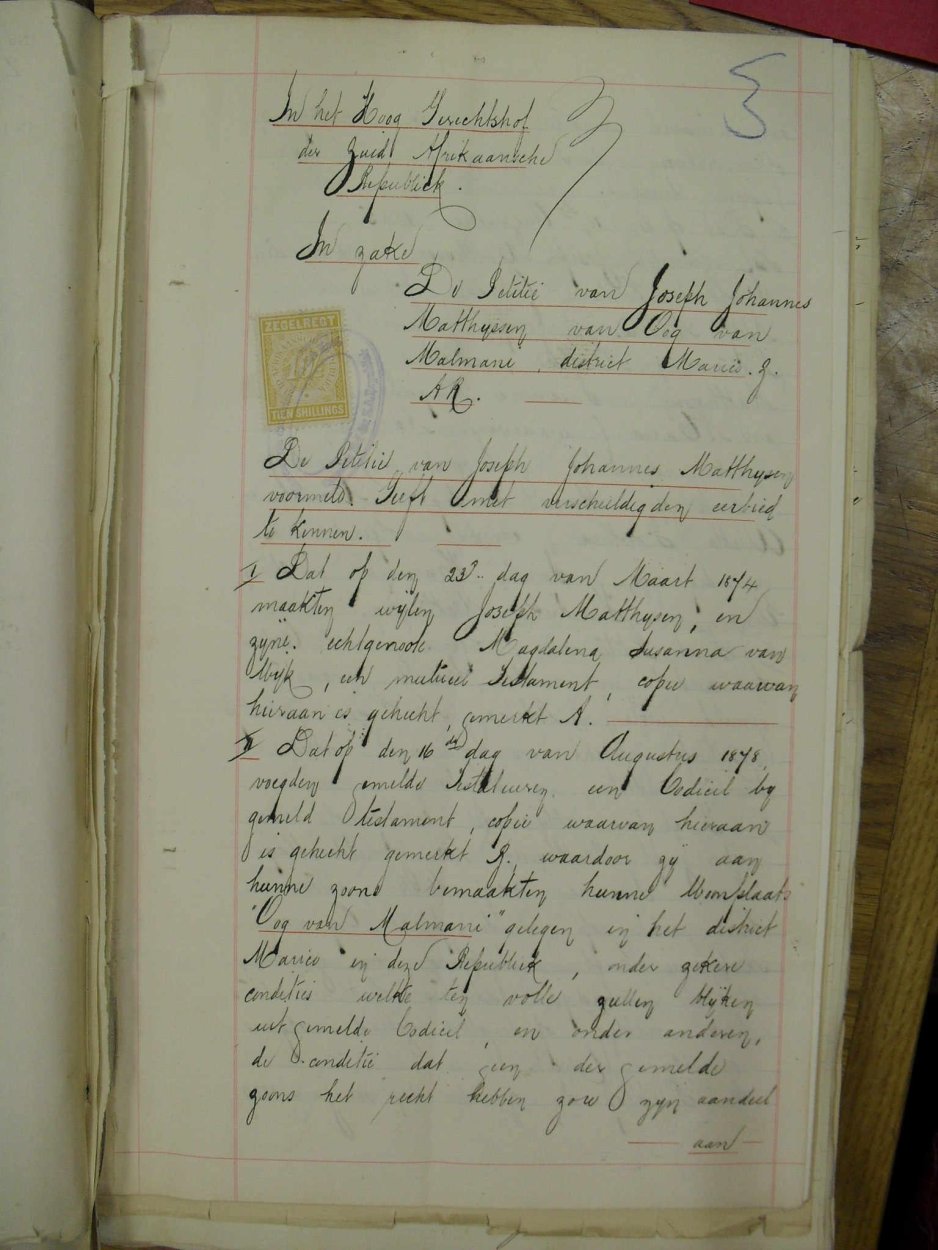 In het Hoog Gerechtshof
der Zuid Afrikaansche
Republiek.
In zake
De Petitie van Joseph Johannes
Matthysen van Oog van
Malmani, district Marico. Z.
AR.
ZEGELREGT
TIEN SHILLINGS
De Petitie van Joseph Johannes Matthysen
voormeld. Geeft met verschuldigden eerbied
te kennen.
I Dat op den 23e dag van Maart 1874
maakten wylen Joseph Matthysen, en
zyne echtgenoote Magdalena Susanna van
Wijk, een mutueel Testament, copie waarvan
hieraan is gehecht, gemerkt A.
II Dat op den 16de dag van Augustus 1878,
voegden gemelde Testateuren een Codicil by
gemeld testament, copie waarvan hieraan
is gehecht gemerkt B, waardoor zy aan
hunne zoons bemaakten hunne Woonplaats
"Oog van Malmani" gelegen in het district
Marico in deze Republiek, onder zekere
condities welke ten volle zullen blijken
uit gemelde Codicil, en onder anderen,
de conditie dat geen der gemelde
zoons het recht hebben zou zyn aandeel
aan